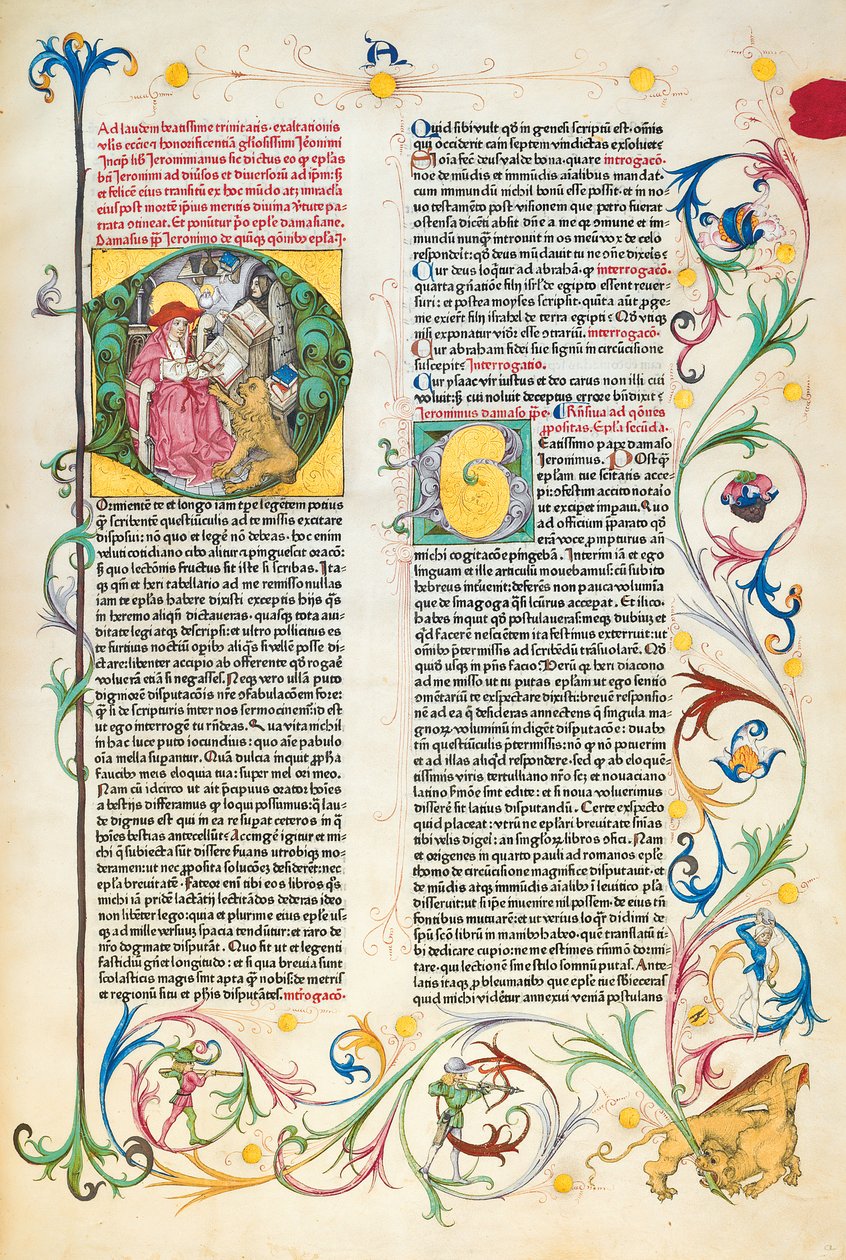 A
Ad laudem beatissime trinitatis · exaltationis
vlis eccie ⁊ honorificentiā gliosissimi Jeronimi
Incip̄ lib̄ Jeronimianus sic dictus eo ꝙ epl̄as
bt̄i Jeronimi ad diūsos et diversorū ad ip̄m: ꝫ
et felicē eius transitū ex hoc mūdo atꝫ miracla
eius post mortē ip̄ius meritis divina v̓tute pa⸗
trata ↄtineat. Et ponūtur p̓o epl̄e damasiane.
Damasus pp̄ Jeronimo de quīqꝫ q̄onibꝰ epl̄a .i.
Dormientē te et longo iam tp̄e legētem potius
q̄ scribentē questiūculis ad te missis excitare
disposui: nō quo et legē nō debeas · hoc enim
veluti cotidiano cibo alitur ⁊ pinguescit oracō:
ꝫ quo lectionis fructus sit iste si scribas. Ita⸗
qꝫ qm̄ et heri tabellario ad me remisso nullas
iam te epl̄as habere dixisti exceptis hijs q̄s
in heremo aliqn̄ dictaveras · quasqꝫ tota aui⸗
ditate legi atqꝫ descripsi: et ultro pollicitus es
te furtiuis noctiū op̄ibꝰ aliq̄s si vellē posse di⸗
ctare: libenter accipio ab offerente qd̓ rogaē
voluerā etiā si negasses. Neqꝫ vero ullā puto
digniorē disputacōis nr̄e ↄfabulacōem fore:
q̄ si de scripturis inter nos sermocinem̄: id est
ut ego interrogē tu rn̄deas. Qua vita nichil
in hac luce puto iocundius: quo aīe pabulo
oīa mella sup̄antur. Quā dulcia inquit ꝓph̄a
faucibꝰ meis eloquia tua: super mel ori meo.
Nam cū idcirco ut ait p̄cipuus orator hoīes
a bestijs differamus ꝙ loqui possumus: q̄ lau⸗
de dignus est qui in ea re superat ceteros in q̄
hoīes bestias antecellūt? Accinge igitur et mi⸗
chi q̄ subiecta sūt dissere s̓uans utrobiqꝫ mo⸗
deramen: ut nec ꝓposita solucōeꝫ desiderēt: nec
epl̄a brevitatē · Fateor enī tibi eos libros q̄s
michi iā pridē lactātij lectitādos dederas ideo
non libēter lego: quia et plurime eius epl̄e us⸗
qꝫ ad mille versuuꝫ spacia tendūtur: et raro de
nr̄o dogmate disputāt. Quo fit ut et legenti
fastidiū gn̄et longitudo: et si qua brevia sunt
scolasticis magis sint apta q̄ nobis: de metris
et regionū situ et ph̄is disputātes. int̓rogacō.
Quid sibi vult qd̓ in genesi scriptū est · om̄is
qui occiderit cain septem vindictas exsoluet?
Si oīa fec̄ deus valde bona · quare introgacō·
noe de mūdis et immūdis aīalibus mandat·
cum immundū nichil bonū esse possit · et in no⸗
vo testamēto post visionem que petro fuerat
ostensa dicēti absit dn̄e a me qꝫ ↄmune et im⸗
mundū nunq̄ introivit in os meū vox de celo
respondeīt: qd̓ deus mūdavit tu ne ↄīe dixeis?
Cur deus loq̄tur ad abrahā · ꝙ interrogacō.
quarta gn̓atiōe filij isrl̄ de egipto essent rever⸗
suri: et postea moyses scripsit · quīta aūt ꝓge⸗
nie exieīt filij israhel de terra egipti? Qd̓ vtiqꝫ
nisi exponatur vid̓r esse ↄtrariū. interrogacō.
Cur abraham fidei sue signū in circūcisione
suscepit? Interrogatio.
Cur ysaac vir iustus et deo carus non illi cui
voluit: sꝫ cui noluit deceptus errore bn̄dixit?
Jeronimus damaso pp̄e · Rn̄siua ad q̄ones
ꝓpositas. Epl̄a secūda.
Beatissimo pape damaso
Jeronimus. Postq̄
epl̄am tue sc̄itatis acce⸗
pi: ↄfestim accito notaīo
ut excip̓et imꝑaui. Quo
ad officium ip̄arato qd̓
erā voce ꝓmpturus an̄
michi cogitacōe pingebā. Interim iā et ego
linguam et ille articulū movebamus: cū subito
hebreus int̓uenit: deferēs non pauca volumīa
que de sinagoga q̄si lc̄urus accepat. Et ilico ·
habes inquit qd̓ postulaueras: meqꝫ dubiuꝫ et
qd̓ facerē nesciētem ita festinus exterruit: ut
om̄ibꝰ p̓termissis ad scribēdū trāsuolarē. Qd̓
quid̓ usqꝫ in pn̄s facio: Verū ꝙ heri diacono
ad me misso ut tu putas epl̄am ut ego sentio
ↄmētariū te exspectare dixisti: breuē responsio⸗
nē ad ea q̄ desideras annectens q̄ singula ma⸗
gnoꝝ voluminū indigēt disputacōe: duabꝰ
tn̄ questiūculis p̓termissis: nō ꝙ nō potuerim
et ad illas aliqd̓ respondere · sed ꝙ ab eloque⸗
tissimis viris tertulliano nr̄o sꝫ et nouaciano
latino s̓mōe sint edite: et si noua voluerimus
disserē sit latius disputandū. Certe exspecto
quid placeat: vtrū ne epl̄ari brevitate sn̄ias
tibi velis digeī: an singl̓oꝝ libros ↄfici. Nam
et origenes in quarto pauli ad romanos epl̄e
thomo de circūcisione magnifice disputavit · et
de mūdis atqꝫ immūdis aīalibꝰ ī levitico pl̓a
disseruit: ut si ip̄e inuenire nil possem · de eius tn̄
fontibus mutuarē: et ut verius loq̄r didimi de
spū sc̄o librū in manibꝰ habeo · quē translatū ti⸗
bi dedicare cupio: ne me estimes tm̄mō dormi⸗
tare · qui lectionē sine stilo somnū putas. Ante⸗
latis itaqꝫ ꝓbleumatibꝰ que epl̄e tue sb̓ieceras
quid michi vidētur annexui veniā postulans